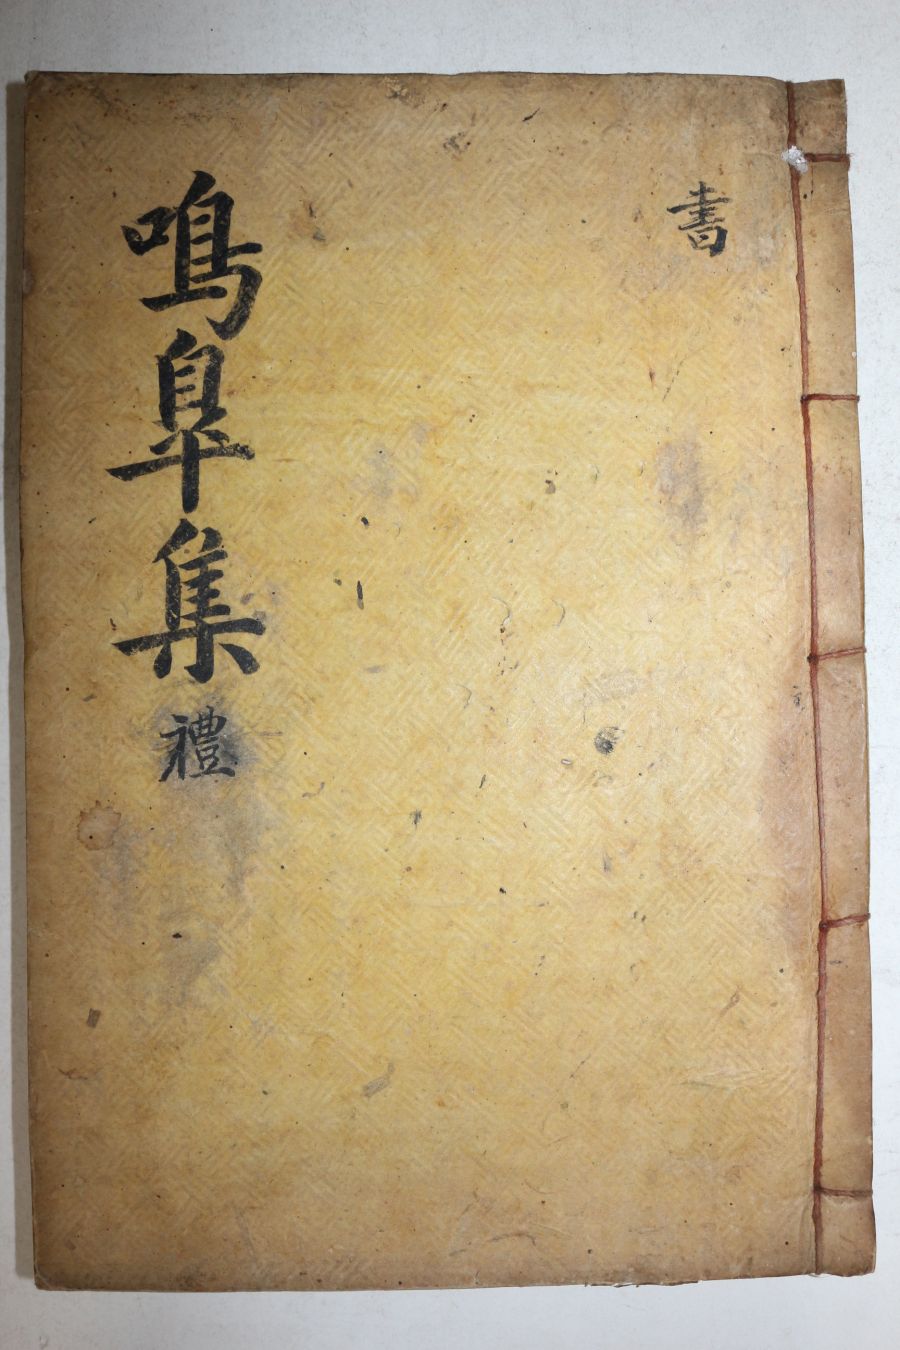 書
鳴皐集
禮